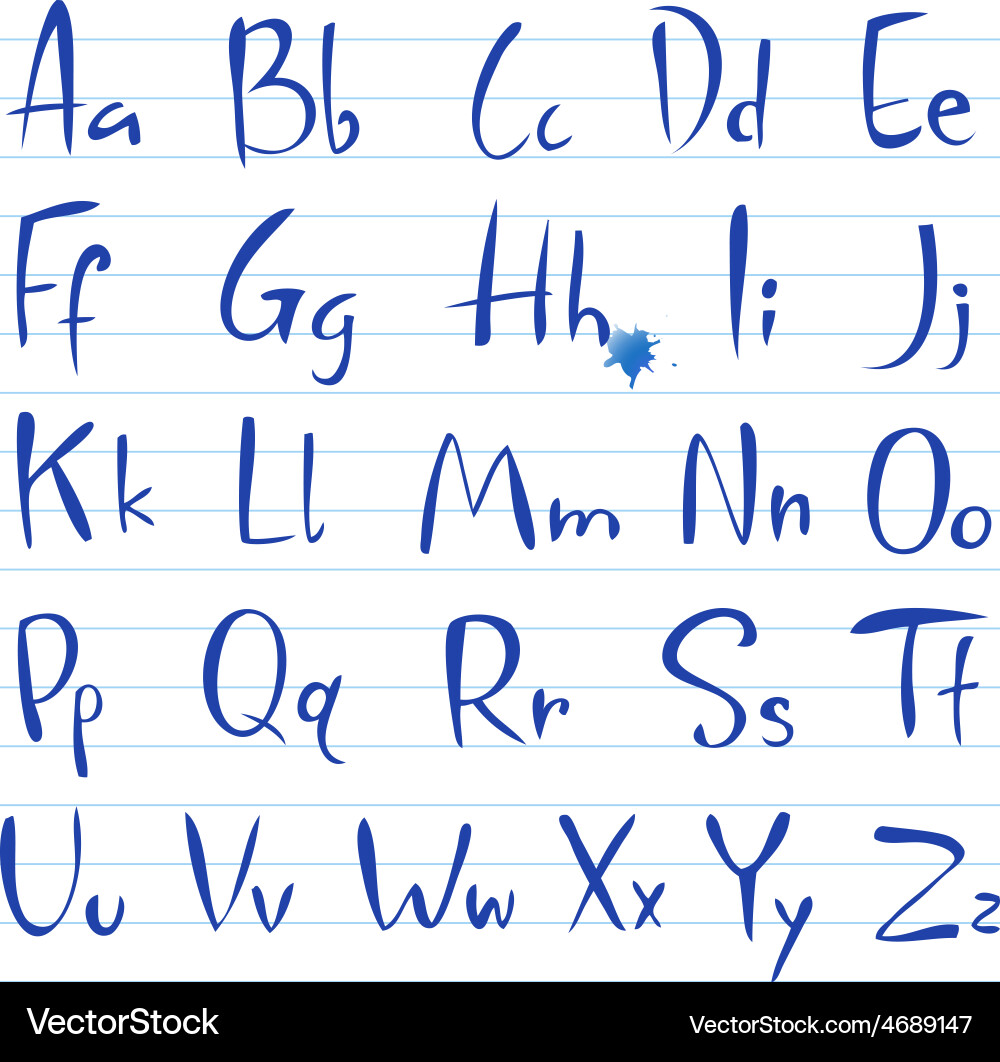 Aa Bb Cc Dd Ee
Ff Gg Hh Ii Jj
Kk Ll Mm Nn Oo
Pp Qq Rr Ss Tt
Uu Vv Ww Xx Yy Zz
VectorStock VectorStock.com/4689147